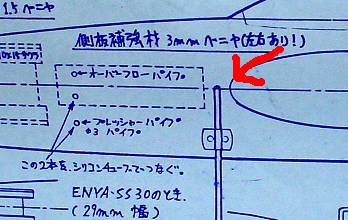 1.5 ベニヤ
側板補強材 3mmベニヤ(左右あり!)
オーバーフローパイプ
プレッシャーパイプ
*3 パイプ
この2本を、シリコンチューブでつなぐ。
ENYA-SS30のとき.
(29mm 幅)